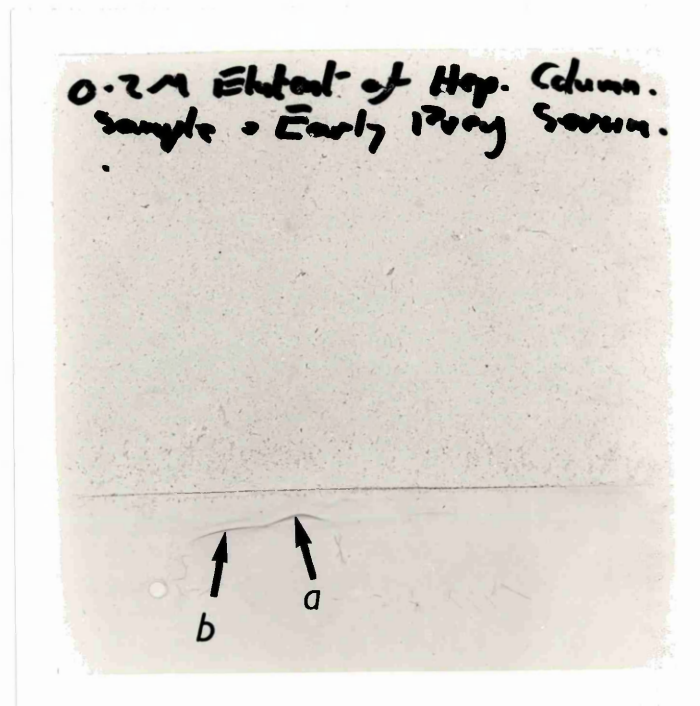 0.2M Eluent of Hep. Column.
Sample = Early Preg Serum.
b
a